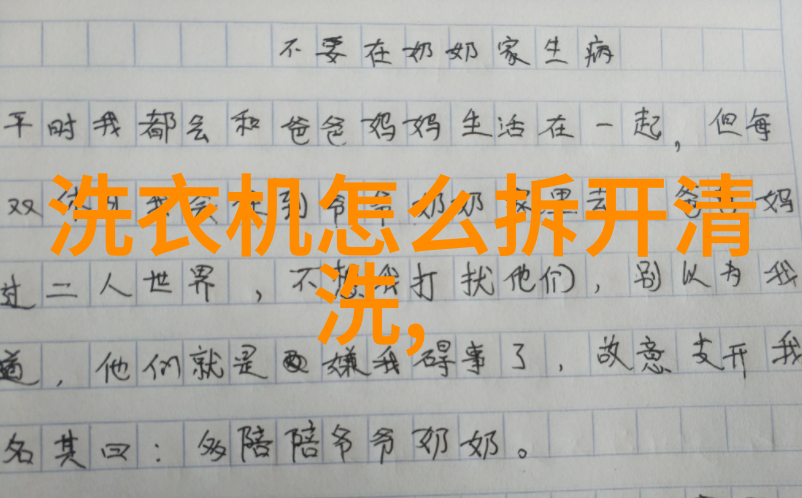 不要在奶奶家生病
平时我都会和爸爸妈妈生活在一起，但每
洗衣机怎么拆开清
洗，
双 我会 到爷爷奶奶家里去 爸 妈
过二人世界，不想我打扰他们，别以为我
道，他们就是嫌我碍事了，故意支开我
名其曰：多陪陪爷爷奶奶。